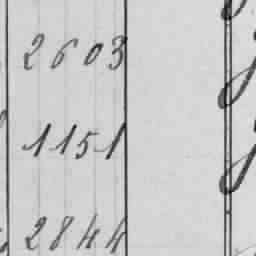 2603
1151
2844